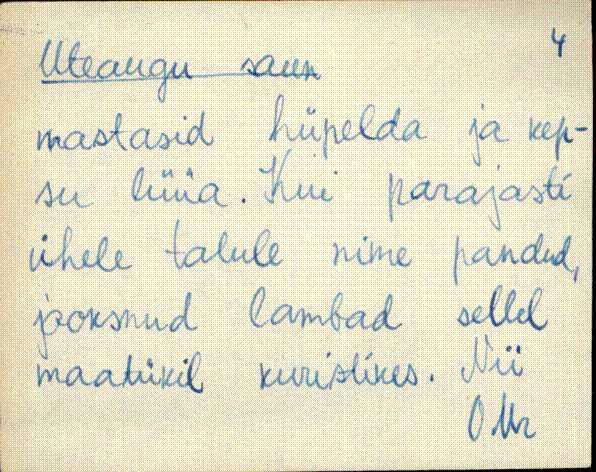 4
Uteaugu saun
mastasid hüpelda ja kep-
su lüüa. Kui parajasti
ühele talule nime pandud,
jooksnud lambad sellel
maatükil kuristikes. Nii